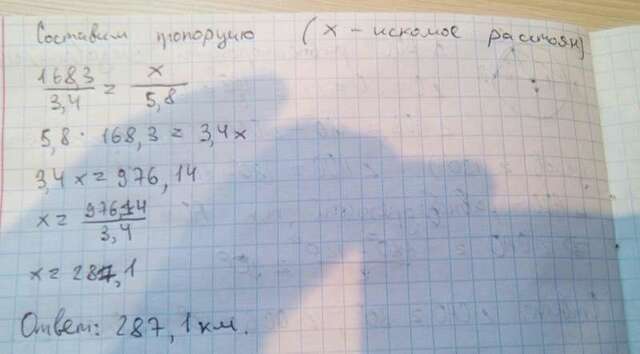 Составим пропорцию (х - искомое расстоян)
168,3/3,4 = х/5,8
5,8 · 168,3 = 3,4х
3,4 х = 976,14
х = 976,14/3,4
х = 287,1
Ответ: 287,1 км.